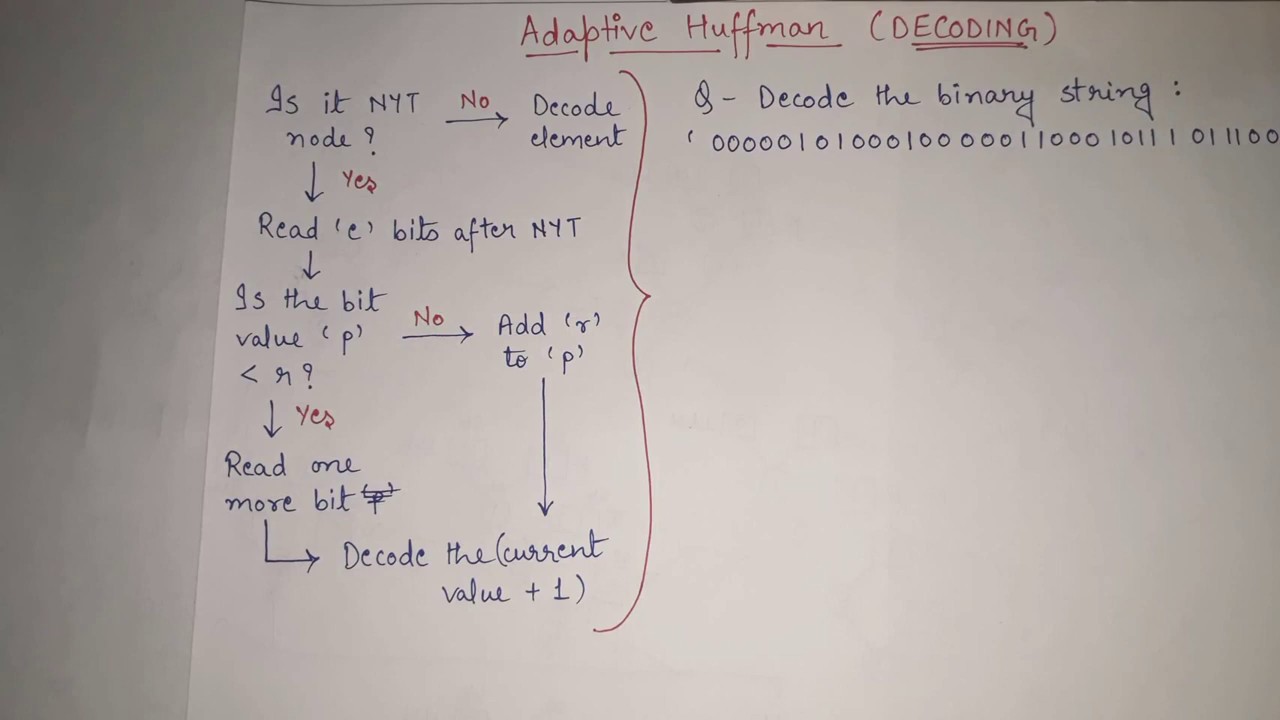 Adaptive Huffman (DECODING)
Is it NYT
node ?
No
Decode
element
Yes
Read 'e' bits after NYT
Is the bit
value 'p'
< r ?
No
Add 'r'
to 'p'
Yes
Read one
more bit
Decode the (current
value + 1)
Q - Decode the binary string :
' 00000101000100 00011000101110 11100